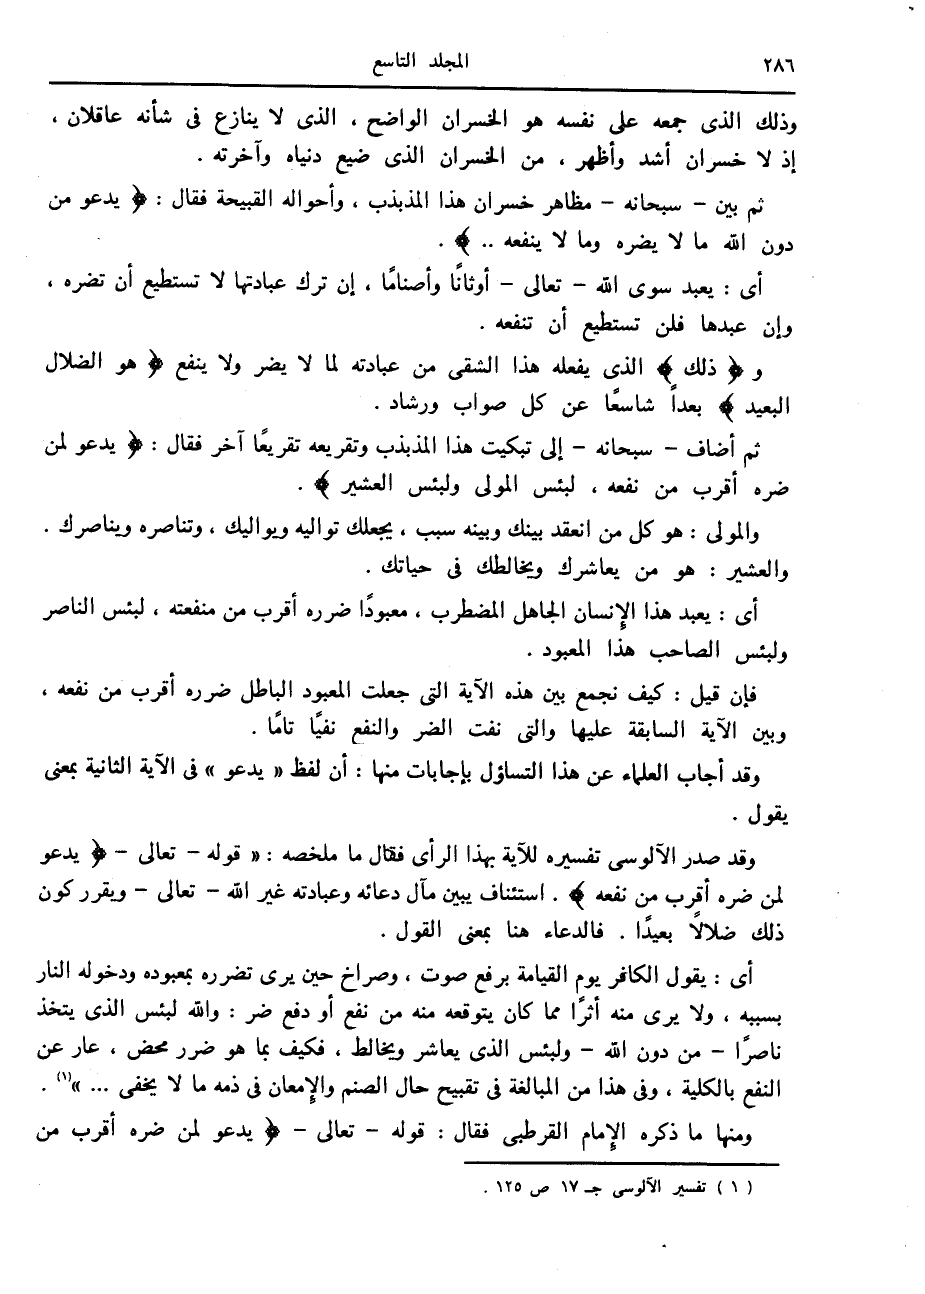 ٢٨٦ المجلد التاسع
وذلك الذى جمعه على نفسه هو الخسران الواضح ، الذى لا ينازع فى شأنه عاقلان ،
إذ لا خسران أشد وأظهر ، من الخسران الذى ضيع دنياه وآخرته .
ثم بين – سبحانه – مظاهر خسران هذا المذبذب ، وأحواله القبيحة فقال : ﴿ يدعو من
دون الله ما لا يضره وما لا ينفعه .. ﴾ .
أى : يعبد سوى الله – تعالى – أوثانًا وأصنامًا ، إن ترك عبادتها لا تستطيع أن تضره ،
وإن عبدها فلن تستطيع أن تنفعه .
و ﴿ ذلك ﴾ الذى يفعله هذا الشقى من عبادته لما لا يضر ولا ينفع ﴿ هو الضلال
البعيد ﴾ بعداً شاسعًا عن كل صواب ورشاد .
ثم أضاف – سبحانه – إلى تبكيت هذا المذبذب وتقريعه تقريعًا آخر فقال : ﴿ يدعو لمن
ضره أقرب من نفعه ، لبئس المولى ولبئس العشير ﴾ .
والمولى : هو كل من انعقد بينك وبينه سبب ، يجعلك تواليه ويواليك ، وتناصره ويناصرك .
والعشير : هو من يعاشرك ويخالطك فى حياتك .
أى : يعبد هذا الإنسان الجاهل المضطرب ، معبودًا ضرره أقرب من منفعته ، لبئس الناصر
ولبئس الصاحب هذا المعبود .
فإن قيل : كيف نجمع بين هذه الآية التى جعلت المعبود الباطل ضرره أقرب من نفعه ،
وبين الآية السابقة عليها والتى نفت الضر والنفع نفيًا تامًا .
وقد أجاب العلماء عن هذا التساؤل بإجابات منها : أن لفظ « يدعو » فى الآية الثانية بمعنى
يقول .
وقد صدر الآلوسى تفسيره للآية بهذا الرأى فقال ما ملخصه : « قوله – تعالى – ﴿ يدعو
لمن ضره أقرب من نفعه ﴾ . استئناف يبين مآل دعائه وعبادته غير الله – تعالى – ويقرر كون
ذلك ضلالًا بعيدًا . فالدعاء هنا بمعنى القول .
أى : يقول الكافر يوم القيامة برفع صوت ، وصراخ حين يرى تضرره بمعبوده ودخوله النار
بسببه ، ولا يرى منه أثرًا مما كان يتوقعه منه من نفع أو دفع ضر : والله لبئس الذى يتخذ
ناصرًا – من دون الله – ولبئس الذى يعاشر ويخالط ، فكيف بما هو ضرر محض ، عار عن
النفع بالكلية ، وفى هذا من المبالغة فى تقبيح حال الصنم والإمعان فى ذمه ما لا يخفى ... »(١) .
ومنها ما ذكره الإمام القرطبى فقال : قوله – تعالى – ﴿ يدعو لمن ضره أقرب من
( ١ ) تفسير الآلوسى جـ ١٧ ص ١٢٥ .